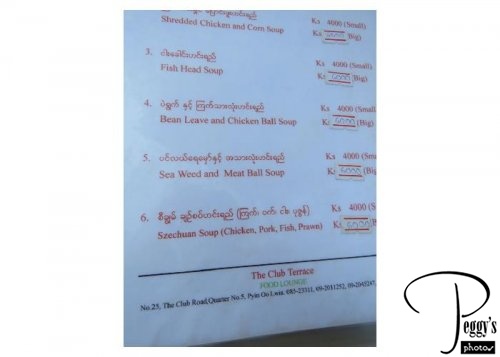 Shredded Chicken and Corn Soup
Ks 4000 (Small)
Ks ၆၀၀၀ (Big)
3. ငါးခေါင်းဟင်းရည်
Fish Head Soup
Ks 4000 (Small)
Ks ၆၀၀၀ (Big)
4. ပဲရွက် နှင့် ကြက်သားလုံးဟင်းရည်
Bean Leave and Chicken Ball Soup
Ks 4000 (Small
Ks ၆၀၀၀ (Big)
5. ပင်လယ်ရေမှော်နှင့် အသားလုံးဟင်းရည်
Sea Weed and Meat Ball Soup
Ks 4000 (Small
Ks ၆၀၀၀ (Big)
6. စီချွမ် ချဉ်စပ်ဟင်းရည် (ကြက်၊ ဝက်၊ ငါး၊ ပုဇွန်)
Szechuan Soup (Chicken, Pork, Fish, Prawn)
Ks 4000 (S
Ks ၆၀၀၀ (B
The Club Terrace
FOOD LOUNGE
No.25, The Club Road,Quarter No.5, Pyin Oo Lwin. 085-23311, 09-2051252, 09-2043247,
Peggy's
photos